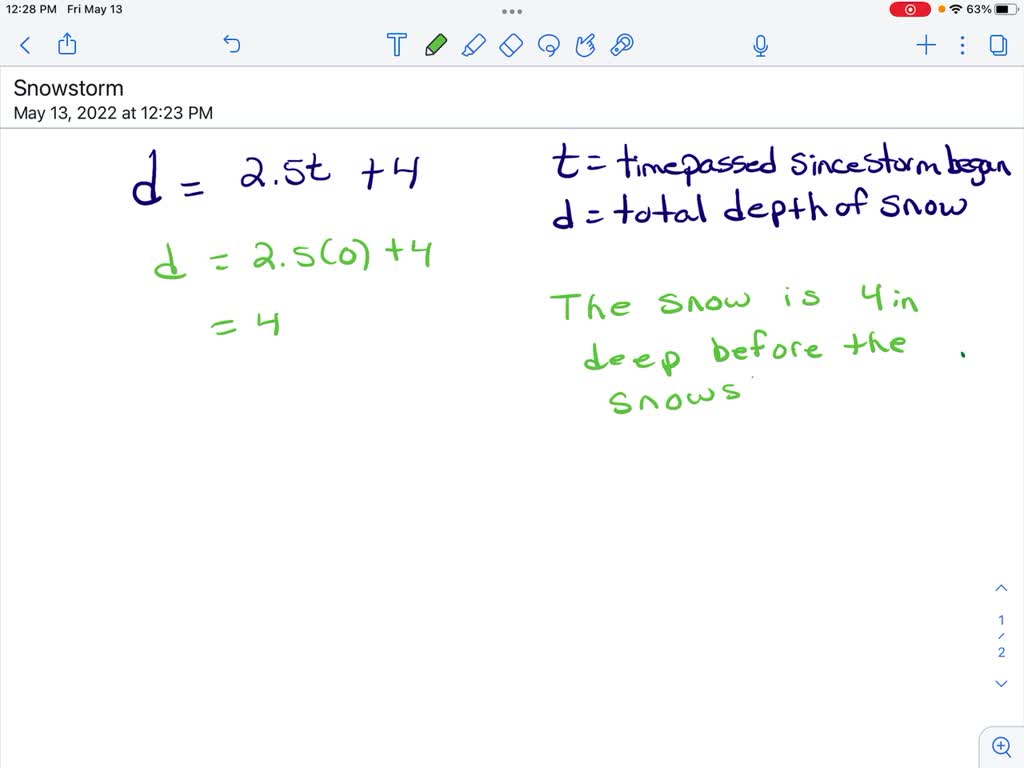 12:28 PM Fri May 13
63%
Snowstorm
May 13, 2022 at 12:23 PM
d = 2.5t + 4
t = time passed since storm began
d = total depth of snow
d = 2.5(0) + 4
= 4
The snow is 4 in
deep before the
snows
1
/
2